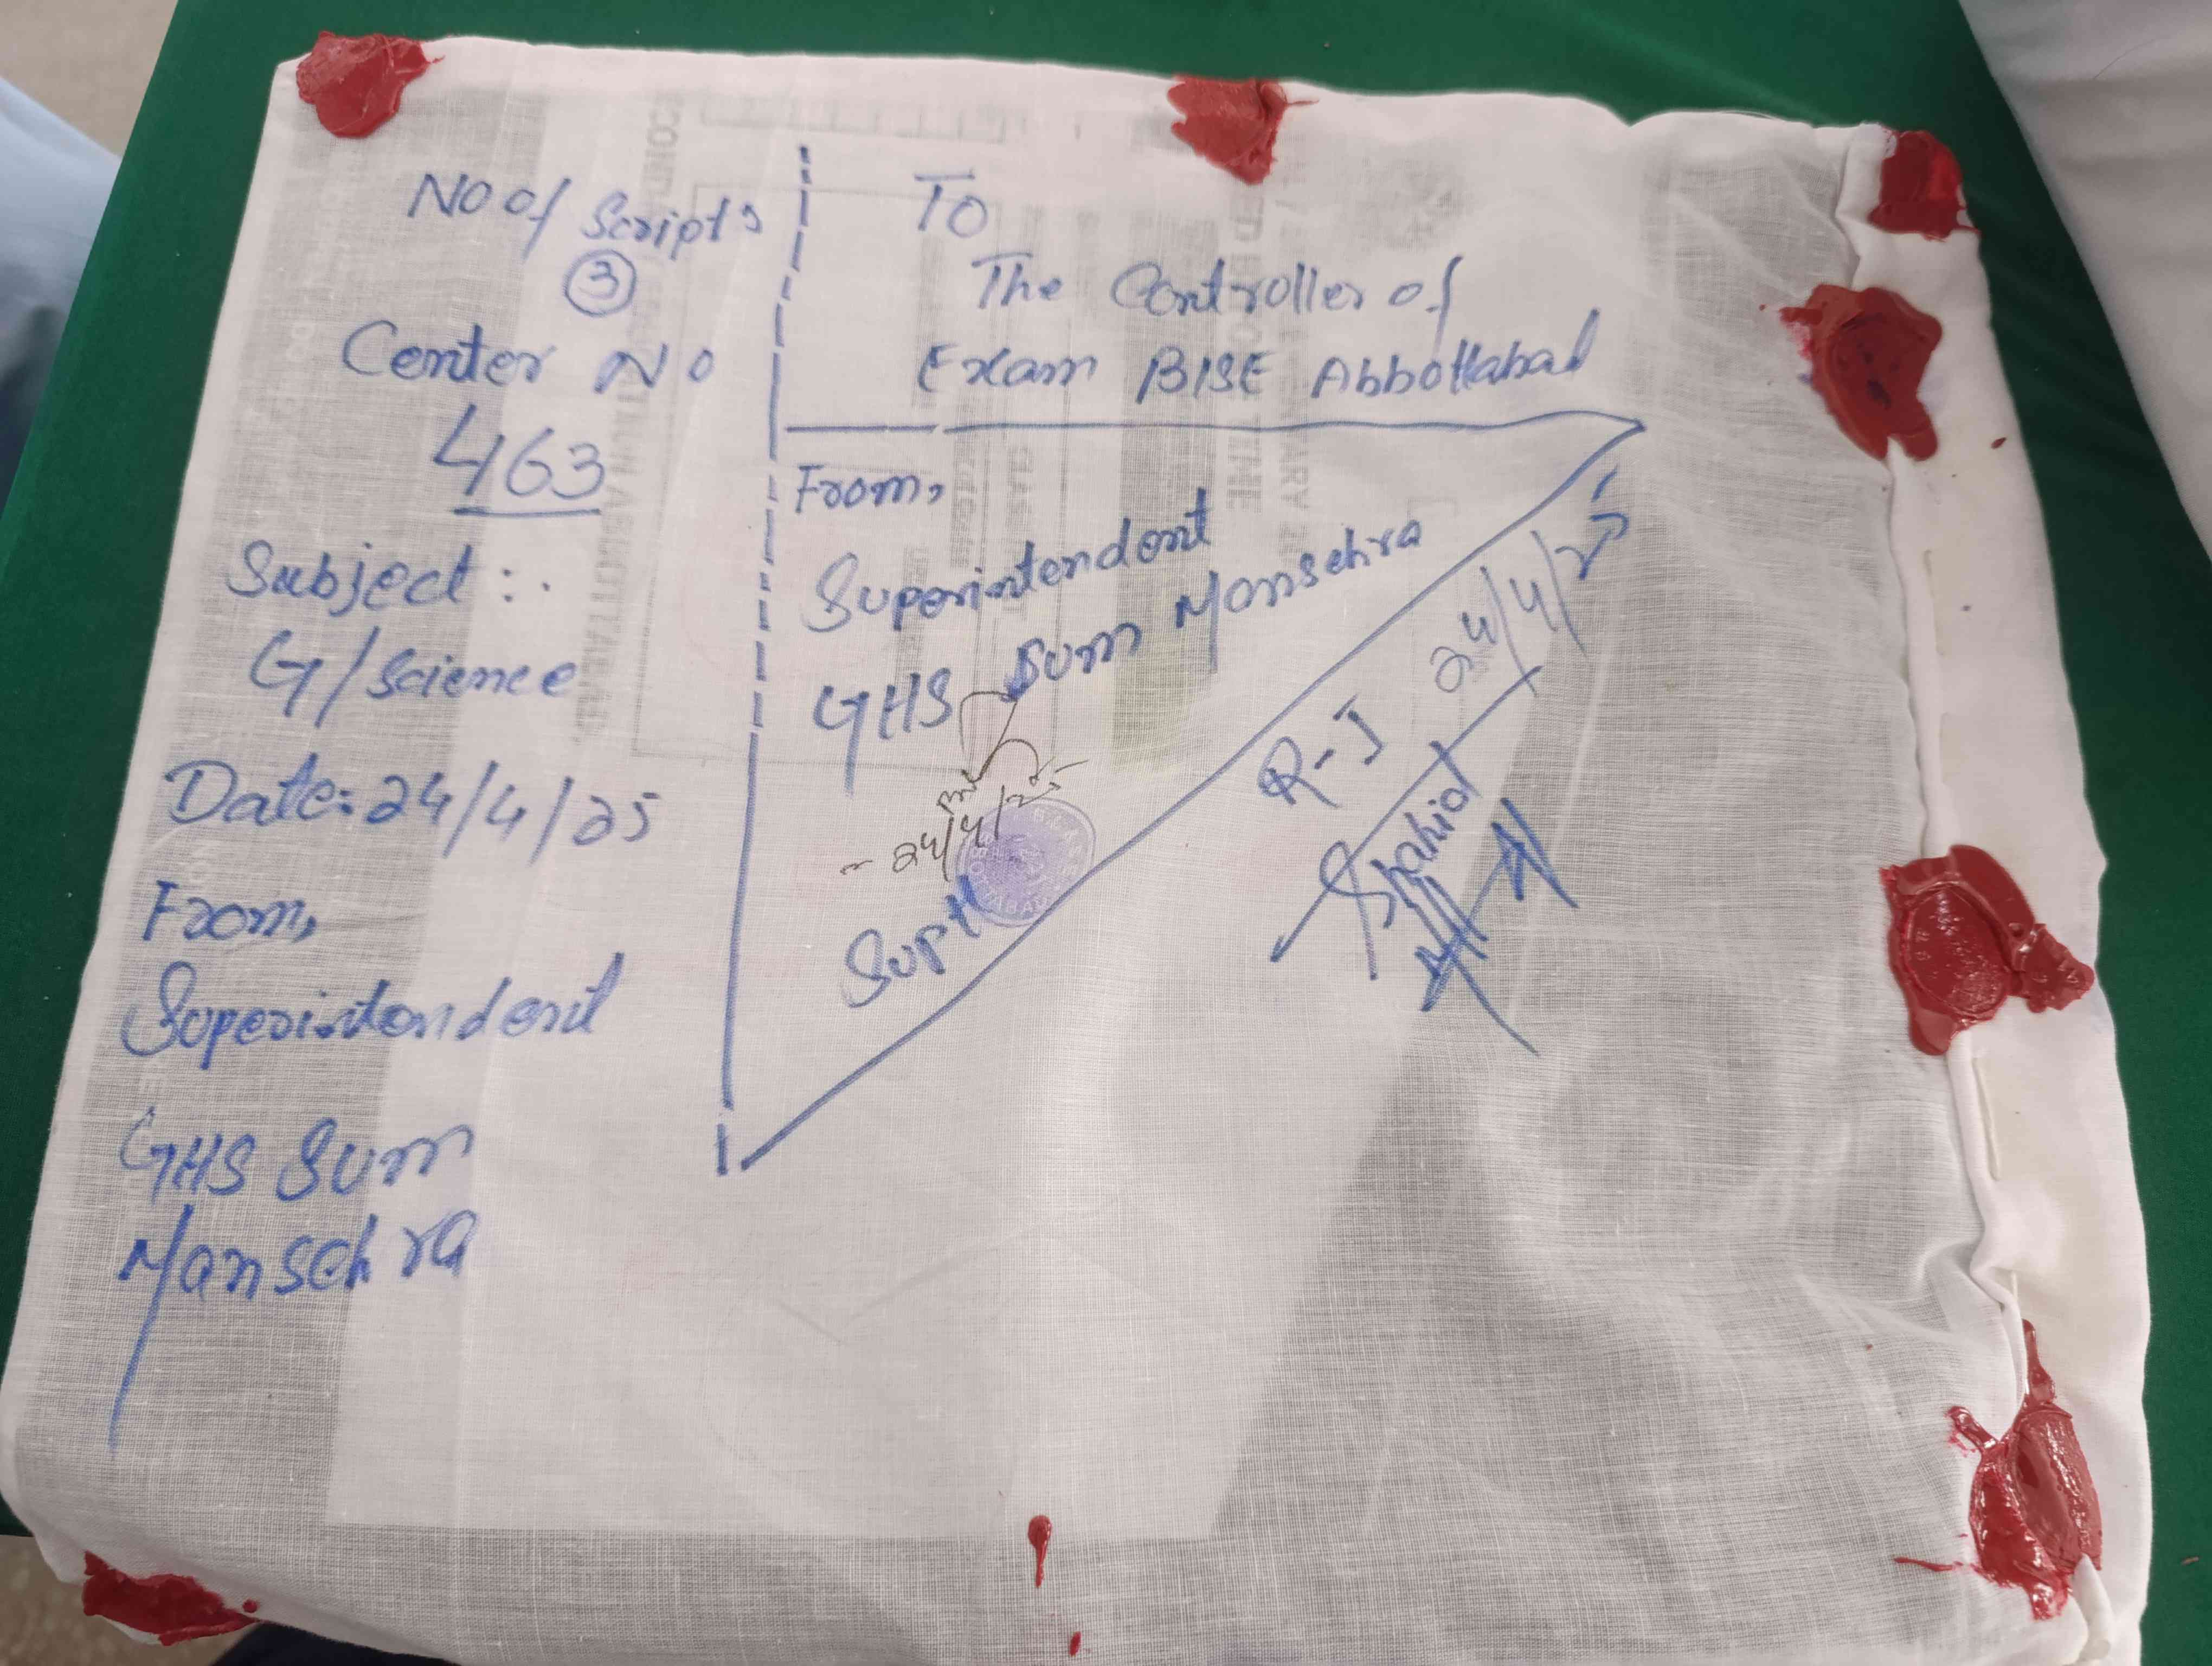 No of Scripts
3
Center No
463
Subject :.
G/Science
Date: 24/4/25
From,
Superintendent
GHS Sum
Mansehra
To
The Controller of
Exam BISE Abbottabad
From,
Superintendent
GHS Sum Mansehra
24/4/25
Supt
R-I 24/4/25
Shahid